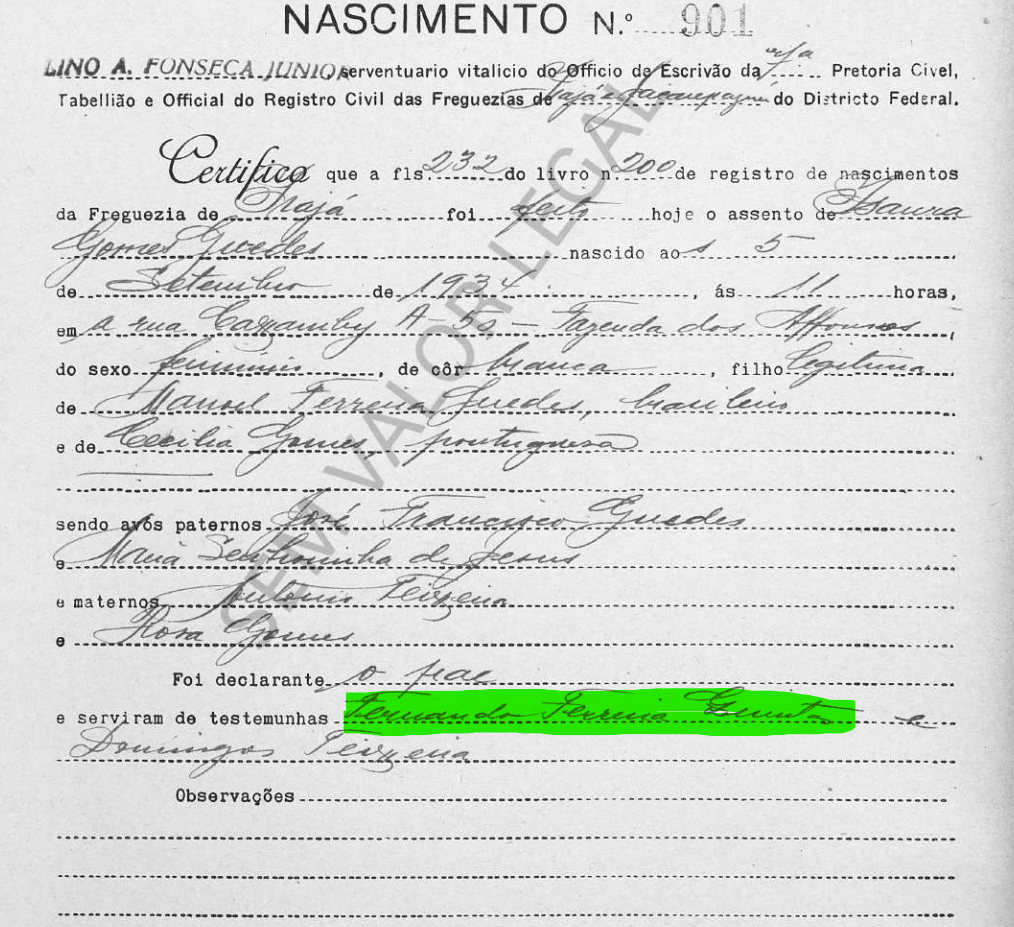 NASCIMENTO N.º 901
LINO A. FONSECA JUNIOR, serventuario vitalicio do Officio de Escrivão da 7ª Pretoria Civel,
Tabellião e Official do Registro Civil das Freguezias de Irajá e Jacarepaguá do Districto Federal.
Certifico que a fls. 232 do livro n. 200 de registro de nascimentos
da Freguezia de Irajá foi feito hoje o assento de Isaura
Gomes Guedes nascido aos 5
de Setembro de 1934, ás 11 horas,
em a rua Caxamby A-50 - Fazenda dos Affonsos,
do sexo feminino, de côr branca, filho legitima
de Manoel Ferreira Guedes, brasileiro
e de Cecilia Gomes, portuguesa
sendo avós paternos José Francisco Guedes
e Maria Senhorinha de Jesus
e maternos Antonio Teixeira
e Rosa Gomes
Foi declarante o pae
e serviram de testemunhas Fernando Ferreira e
Domingos Teixeira
Observações
SEM VALOR LEGAL